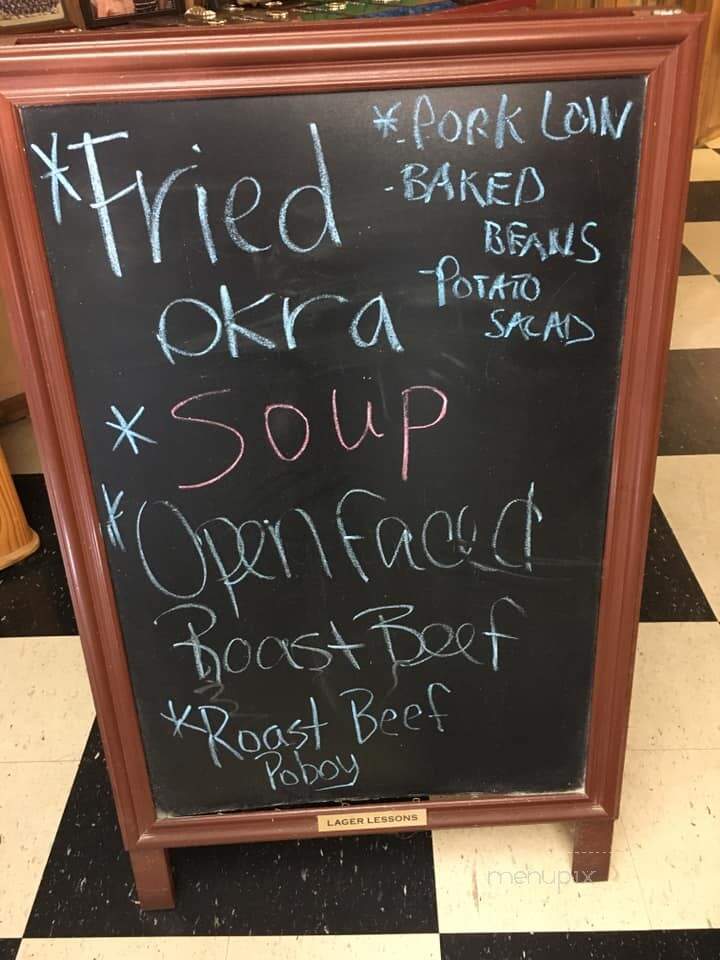 *Fried
okra
*PORK LOIN
-BAKED
BEANS
-POTATO
SALAD
*Soup
*Open faced
Roast Beef
*Roast Beef
Poboy
LAGER LESSONS
menupix